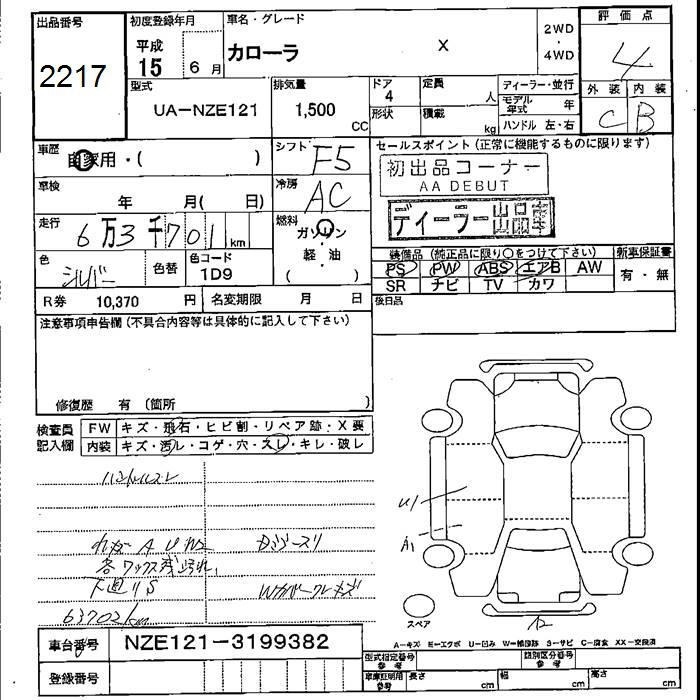 出品番号
2217
初度登録年月
平成
15 6 月
車名・グレード
カローラ X
2WD
・
4WD
評価点
4
外装 内装
C B
型式
UA-NZE121
排気量
1,500
CC
ドア
4
形状
定員
人
積載
kg
ディーラー・並行
モデル年式 年
ハンドル 左・右
車歴
自家用・( )
シフト
F5
車検
年 月( 日)
冷房
AC
走行
6万3千701km
燃料
ガソリン
軽油
( )
色
シルバー
色替
色コード
1D9
R券 10,370 円
名変期限 月 日
セールスポイント(正常に機能するものに限ります)
初出品コーナー
AA DEBUT
ディーラー出品車
装備品(純正品に限り〇をつけて下さい)
新車保証書
PS PW ABS エアB AW
SR ナビ TV カワ
有・無
後日品
注意事項申告欄(不具合内容等は具体的に記入して下さい)
修復歴 有(箇所 )
検査員
記入欄
FW キズ・飛石・ヒビ割・リペア跡・X要
内装 キズ・汚レ・コゲ・穴・スレ・キレ・破レ
ハンドルスレ
63702km
U1
A1
スペア
A-キズ E-エクボ U-凹み W-補修跡 S-サビ C-腐食 XX-交換済
車台番号 NZE121-3199382
登録番号
型式指定番号
参考
類別区分番号
参考
車庫証明用
参考
長さ cm
幅 cm
高さ cm